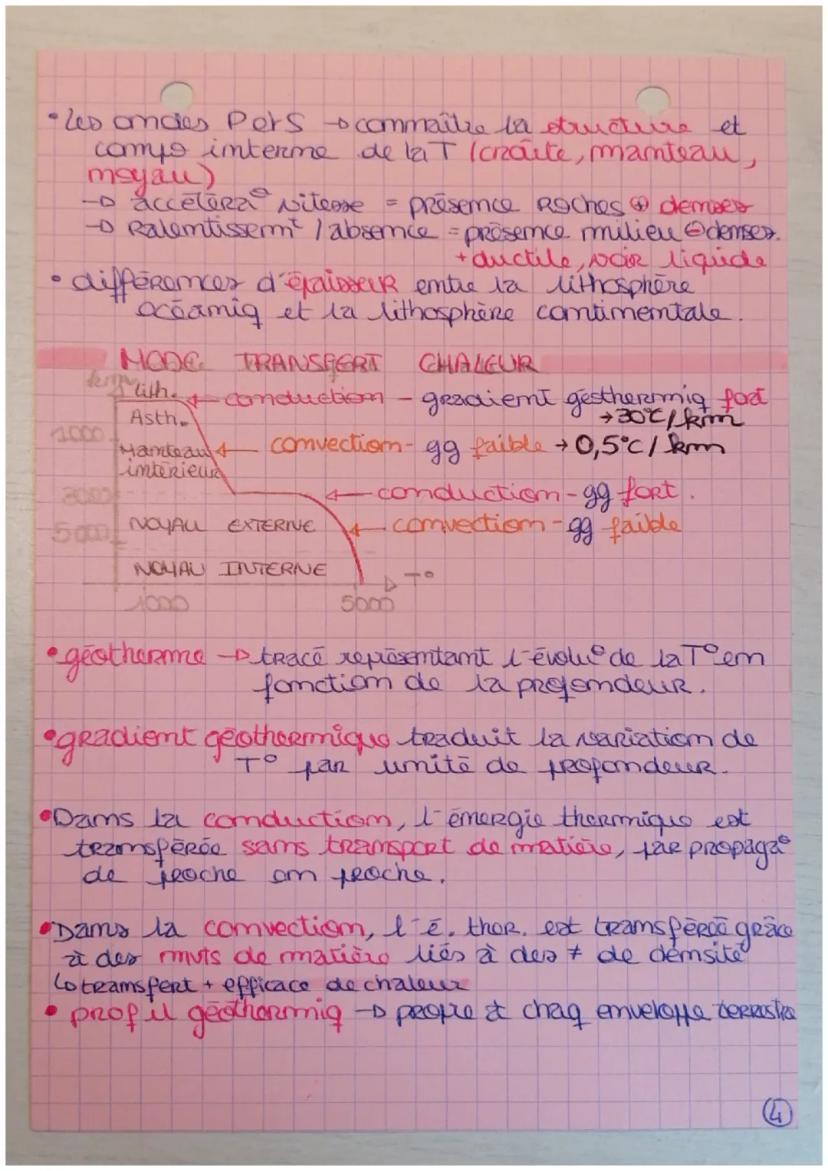 • Les ondes P et S → connaître la structure et
compo interne de la T (croûte, manteau,
noyau)
→ accélérat° vitesse = présence Roches ⊕ denses
→ Ralentissemt / absence = présence milieu ⊖ denses.
+ ductile, voir liquide
• différences d'épaisseur entre la lithosphère
océaniq et la lithosphère continentale.
MODE TRANSFERT CHALEUR
km
Lith. ← conduction - gradient géothermiq fort
→ 30°C/km
Asth.
1000
Manteau ← convection - gg faible → 0,5°C/km
interieur
3000 ← conduction - gg fort.
5000 NOYAU EXTERNE ← convection - gg faible
NOYAU INTERNE
T°
1000 5000
• géotherme → tracé représentant l'évolu° de la T° en
fonction de la profondeur.
• gradient géothermique traduit la variation de
T° par unité de profondeur.
• Dans la conduction, l'énergie thermique est
transférée sans transport de matière, par propaga°
de proche en proche.
• Dans la convection, l'é. ther. est transférée grâce
à des mvts de matière liés à des ≠ de densité
↳ transfert + efficace de chaleur
• profil géothermiq → propre à chaq enveloppe terrestre
4